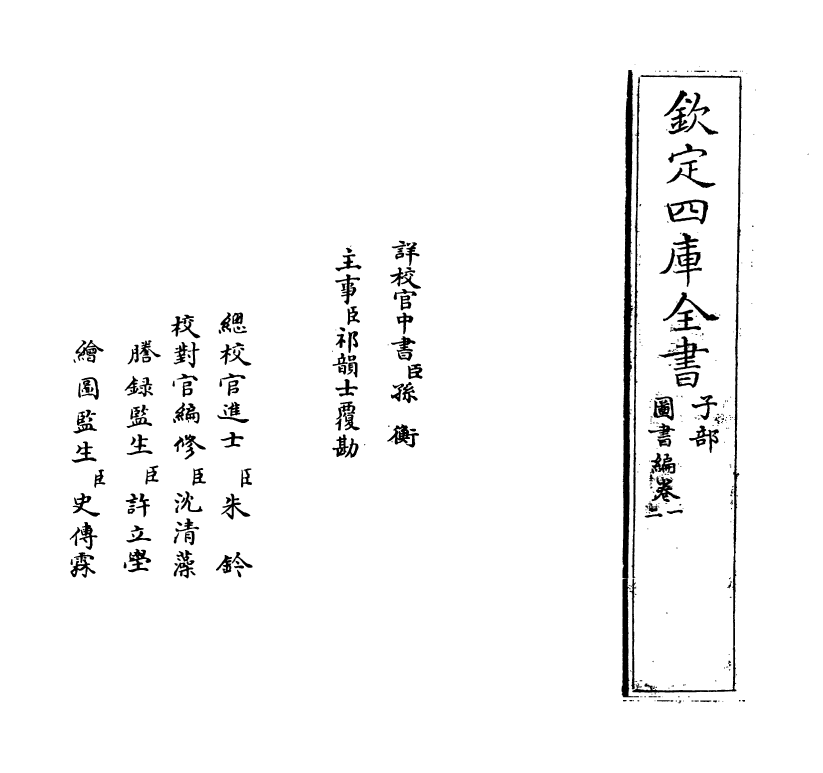 欽定四庫全書
子部
圖書編卷一二
詳校官中書臣孫衡
主事臣祁韻士覆勘
總校官進士臣朱鈐
校對官編修臣沈清藻
謄録監生臣許立堂
繪圖監生臣史傳霖